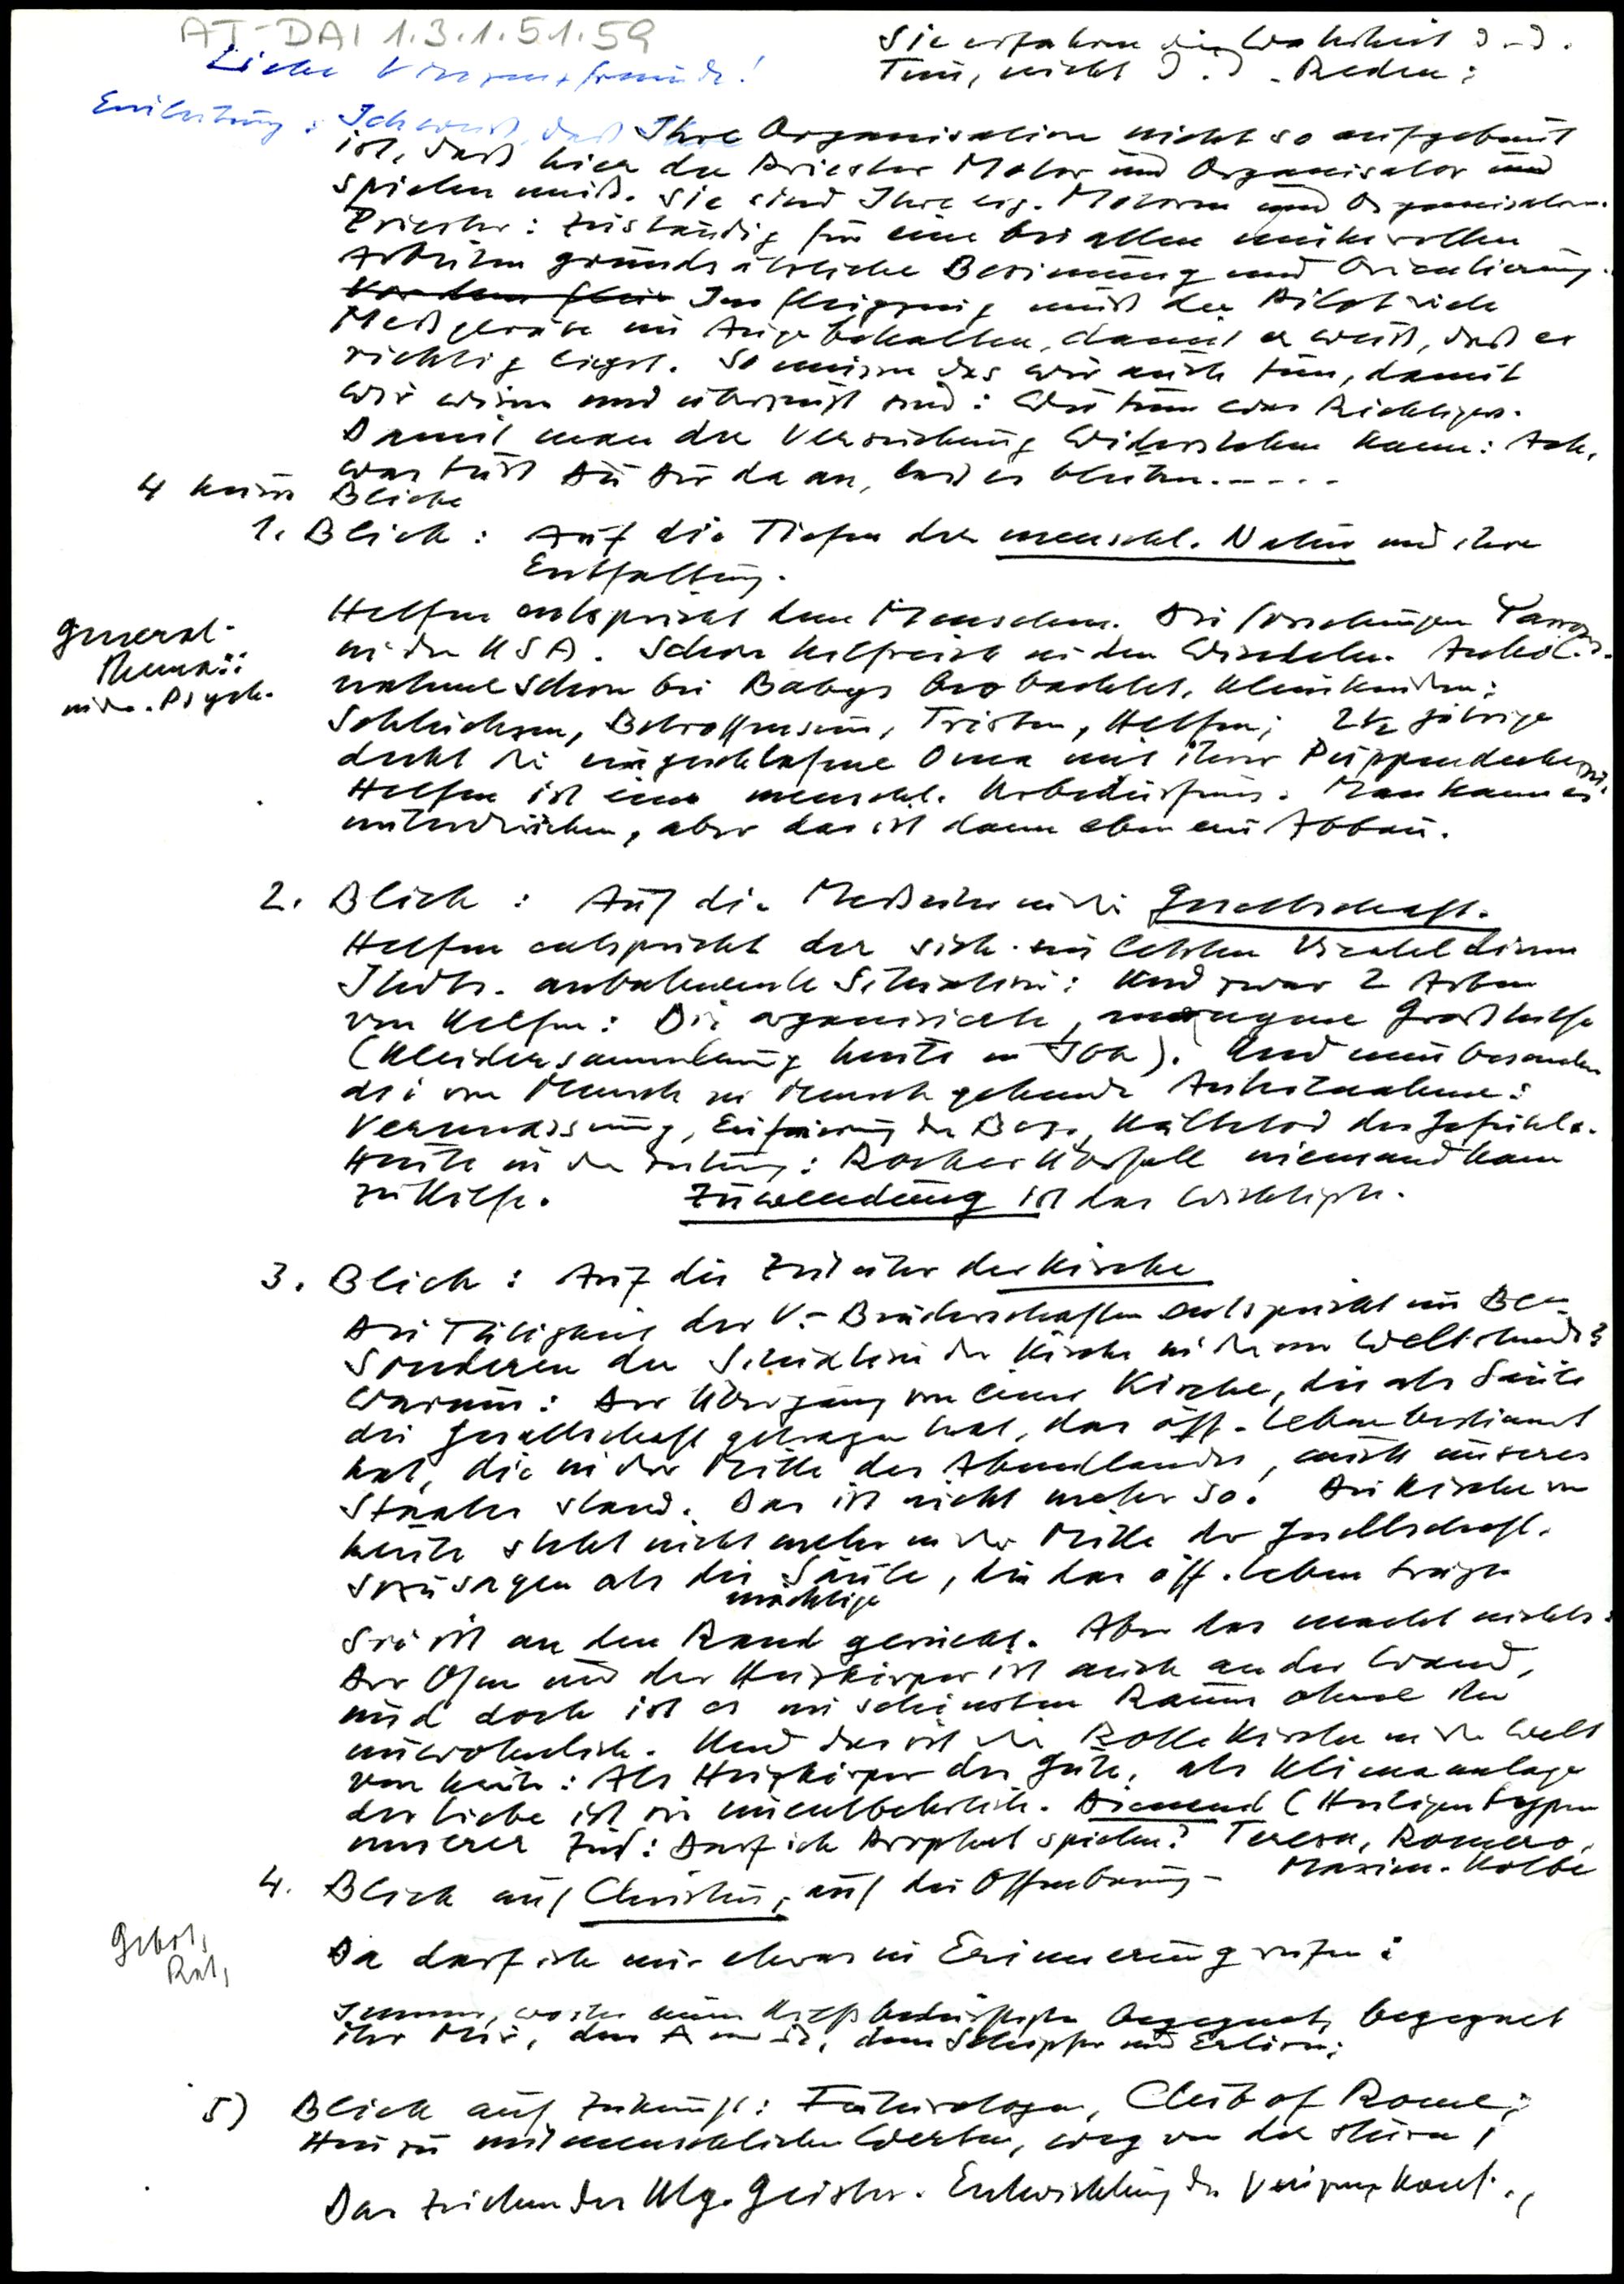 AT-DAI 1.3.1.51.59
Sie erfahren die Wahrheit d. d.
Tun, nicht d. d. Reden:
Liebe Vinzenzfreunde!
Einleitung: Ich weiß, daß Ihre Organisation nicht so aufgebaut
ist, daß hier der Priester Motor und Organisator
spielen muß. Sie sind Ihre eig. Motoren und Organisatoren.
Priester: zuständig für eine bei allen mühevollen
Arbeiten grundsätzliche Besinnung und Orientierung.
Im Flugzeug muß der Pilot viele
Meßgeräte im Auge behalten, damit er weiß, daß er
richtig liegt. So müssen das wir auch tun, damit
wir wissen und überzeugt sind: Wir tun etwas Richtiges.
Damit man der Versuchung widerstehen kann: Ach,
was tust Du Dir da an, laß es bleiben.....
4 kurze Blicke
1. Blick: Auf die Tiefen der menschl. Natur und ihre
Entfaltung.
Helfen entspricht dem Menschen. Die Forschungen
in den USA. Schon hilfreich in den Windeln. Anteil-
nahme schon bei Babys beobachtet, Kleinkindern:
Schluchzen, Betroffensein, Trösten, Helfen; 2½ jährige
deckt die eingeschlafene Oma mit ihrer Puppendecke zu.
Helfen ist ein menschl. Urbedürfnis. Man kann es
unterdrücken, aber das ist dann eben ein Abbau.
General-
in der Psych.
2. Blick: Auf die Meßuhr in die Gesellschaft.
Helfen entspricht der sich im letzten Viertel dieses
Jhdts. anbahnende Situation: Und zwar 2 Arten
von Helfen: Die organisierte, Großhilfe
(Kleidersammlung heute in Ibk). Und nun besonders
die von Mensch zu Mensch gehende Anteilnahme:
Vermassung, Kältetod der Gefühle.
Heute in der Zeitung: Überfall niemand kam
zu Hilfe. Zuwendung ist das Wichtigste.
3. Blick: Auf die Zeituhr der Kirche
Die Tätigkeit der V.-Bruderschaften entspricht im Be-
sonderen der Situation der Kirche in dieser Weltstunde:
Warum: Der Übergang von einer Kirche, die als Säule
die Gesellschaft getragen hat, das öff. Leben bestimmt
hat, die in der Mitte des Abendlandes, auch unseres
Staates stand. Das ist nicht mehr so. Die Kirche von
heute steht nicht mehr in der Mitte der Gesellschaft.
Sozusagen als die mächtige Säule, die das öff. Leben trägt.
Sie ist an den Rand gerückt. Aber das macht nichts:
Der Ofen und der Heizkörper ist auch an der Wand,
und doch ist es im schönsten Raum ohne ihn
unwohnlich. Und das ist die Rolle Kirche in der Welt
von heute: Als Heizkörper der Güte, als Klimaanlage
der Liebe ist sie unentbehrlich. Dienend (Heiligentypen
unserer Zeit: Darf ich Prophet spielen? Teresa, Romero,
Maxim. Kolbe
4. Blick auf Christus, auf die Offenbarung -
Gebot,
Rat,
Da darf ich nur etwas in Erinnerung rufen:
Immer, wo ihr einem Hilfsbedürftigen begegnet, begegnet
ihr Mir, dem Schöpfer und Erlöser;
5) Blick auf Zukunft: Futurologen, Club of Rome;
Hin zu mitmenschlichen Werten, weg von
Das Zeichen des Hlg. Geistes. Entwicklung der Vinzenzkonf.,